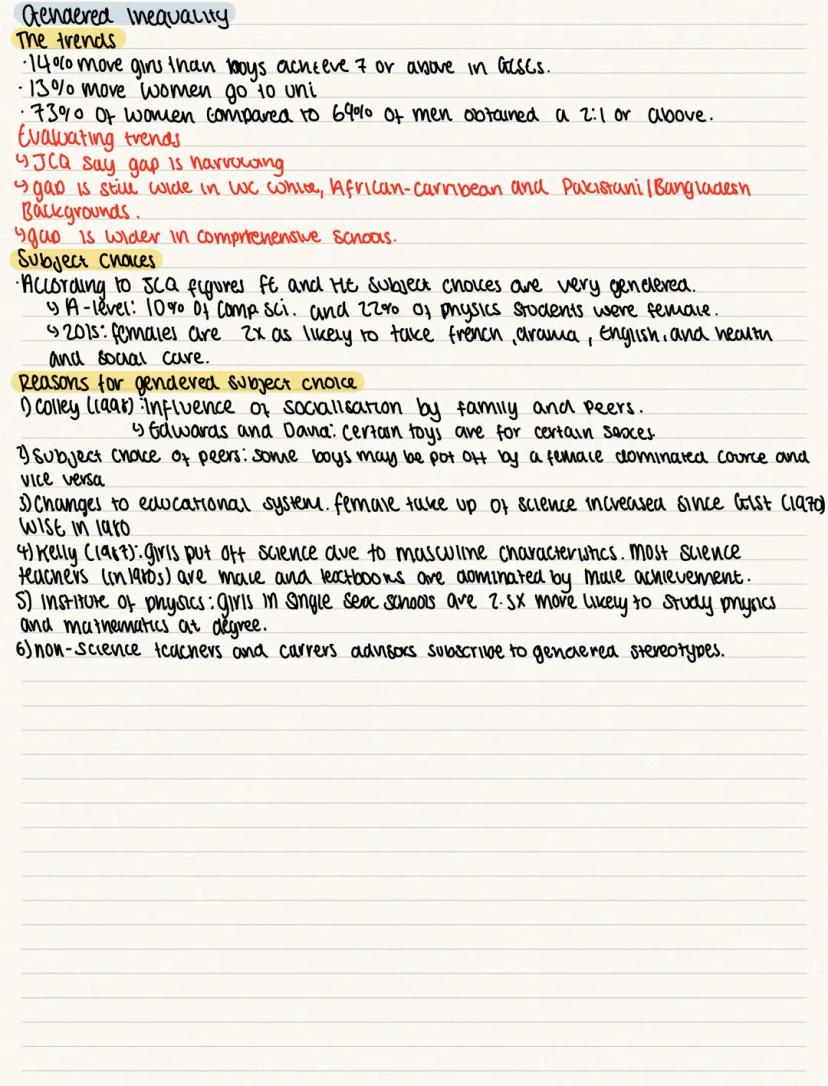 Gendered Inequality
The trends
·14% more girls than boys achieve 7 or above in GCSEs.
·13% more women go to uni
·73% of women compared to 69% of men obtained a 2:1 or above.
Evaluating trends
↳JCQ say gap is narrowing
↳gap is still wide in WC white, African-carribean and Pakistani/Bangladesh
Backgrounds.
↳gap is wider in comprehensive schools.
Subject choices
·According to JCQ figures FE and HE subject choices are very gendered.
↳A-level: 10% of comp sci. and 22% of physics students were female.
↳2015: females are 2x as likely to take french, drama, English, and health
and social care.
Reasons for gendered subject choice
1) Colley (1998): Influence of socialisation by family and peers.
↳Edwards and David: certain toys are for certain sexes
2) Subject choice of peers: some boys may be put off by a female dominated cource and
vice versa
3) Changes to educational system. female take up of science increased since GIST (1970)
WISE in 1980
4) Kelly (1987): girls put off science due to masculine characteristics. Most science
teachers (in 1980s) are male and textbooks are dominated by male achievement.
5) Institute of physics: girls in single sex schools are 2.5x more likely to study physics
and mathematics at degree.
6) non-science teachers and carrers advisors subscribe to gendered stereotypes.